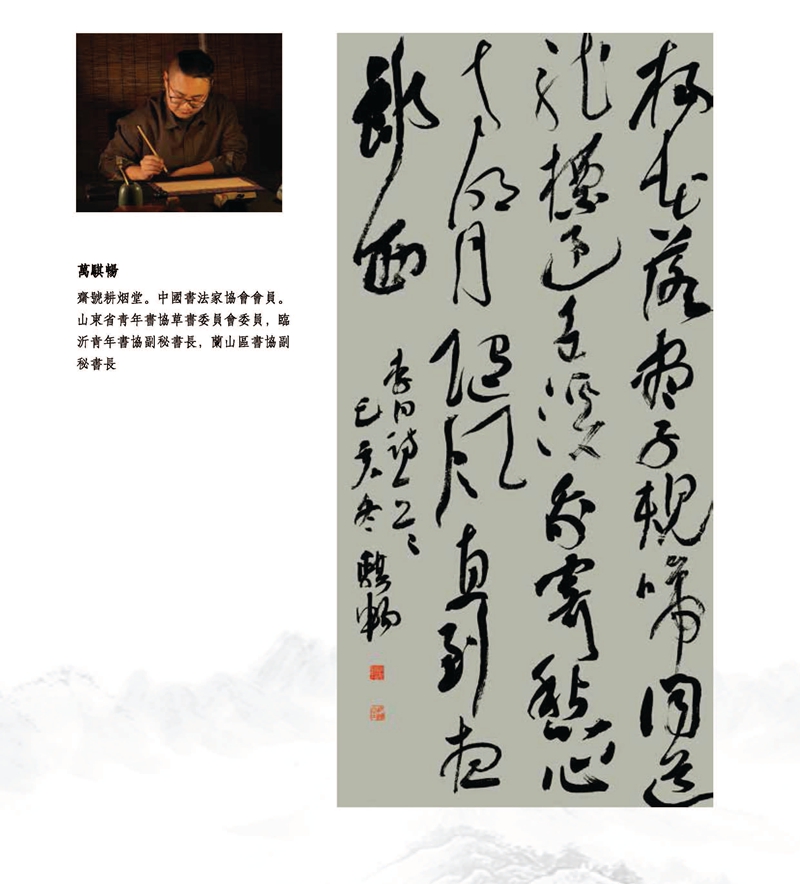 萬騏暢
齋號耕烟堂。中國書法家協會會員。
山東省青年書協草書委員會委員，臨
沂青年書協副秘書長，蘭山區書協副
秘書長
楊花落盡子規啼聞道
龍標過五溪我寄愁心
與明月隨風直到夜
郎西
李白詩一首
己亥冬騏暢